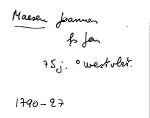 Maesen Joannes
fs Jan
75 j. ° westvlet.
1790-27